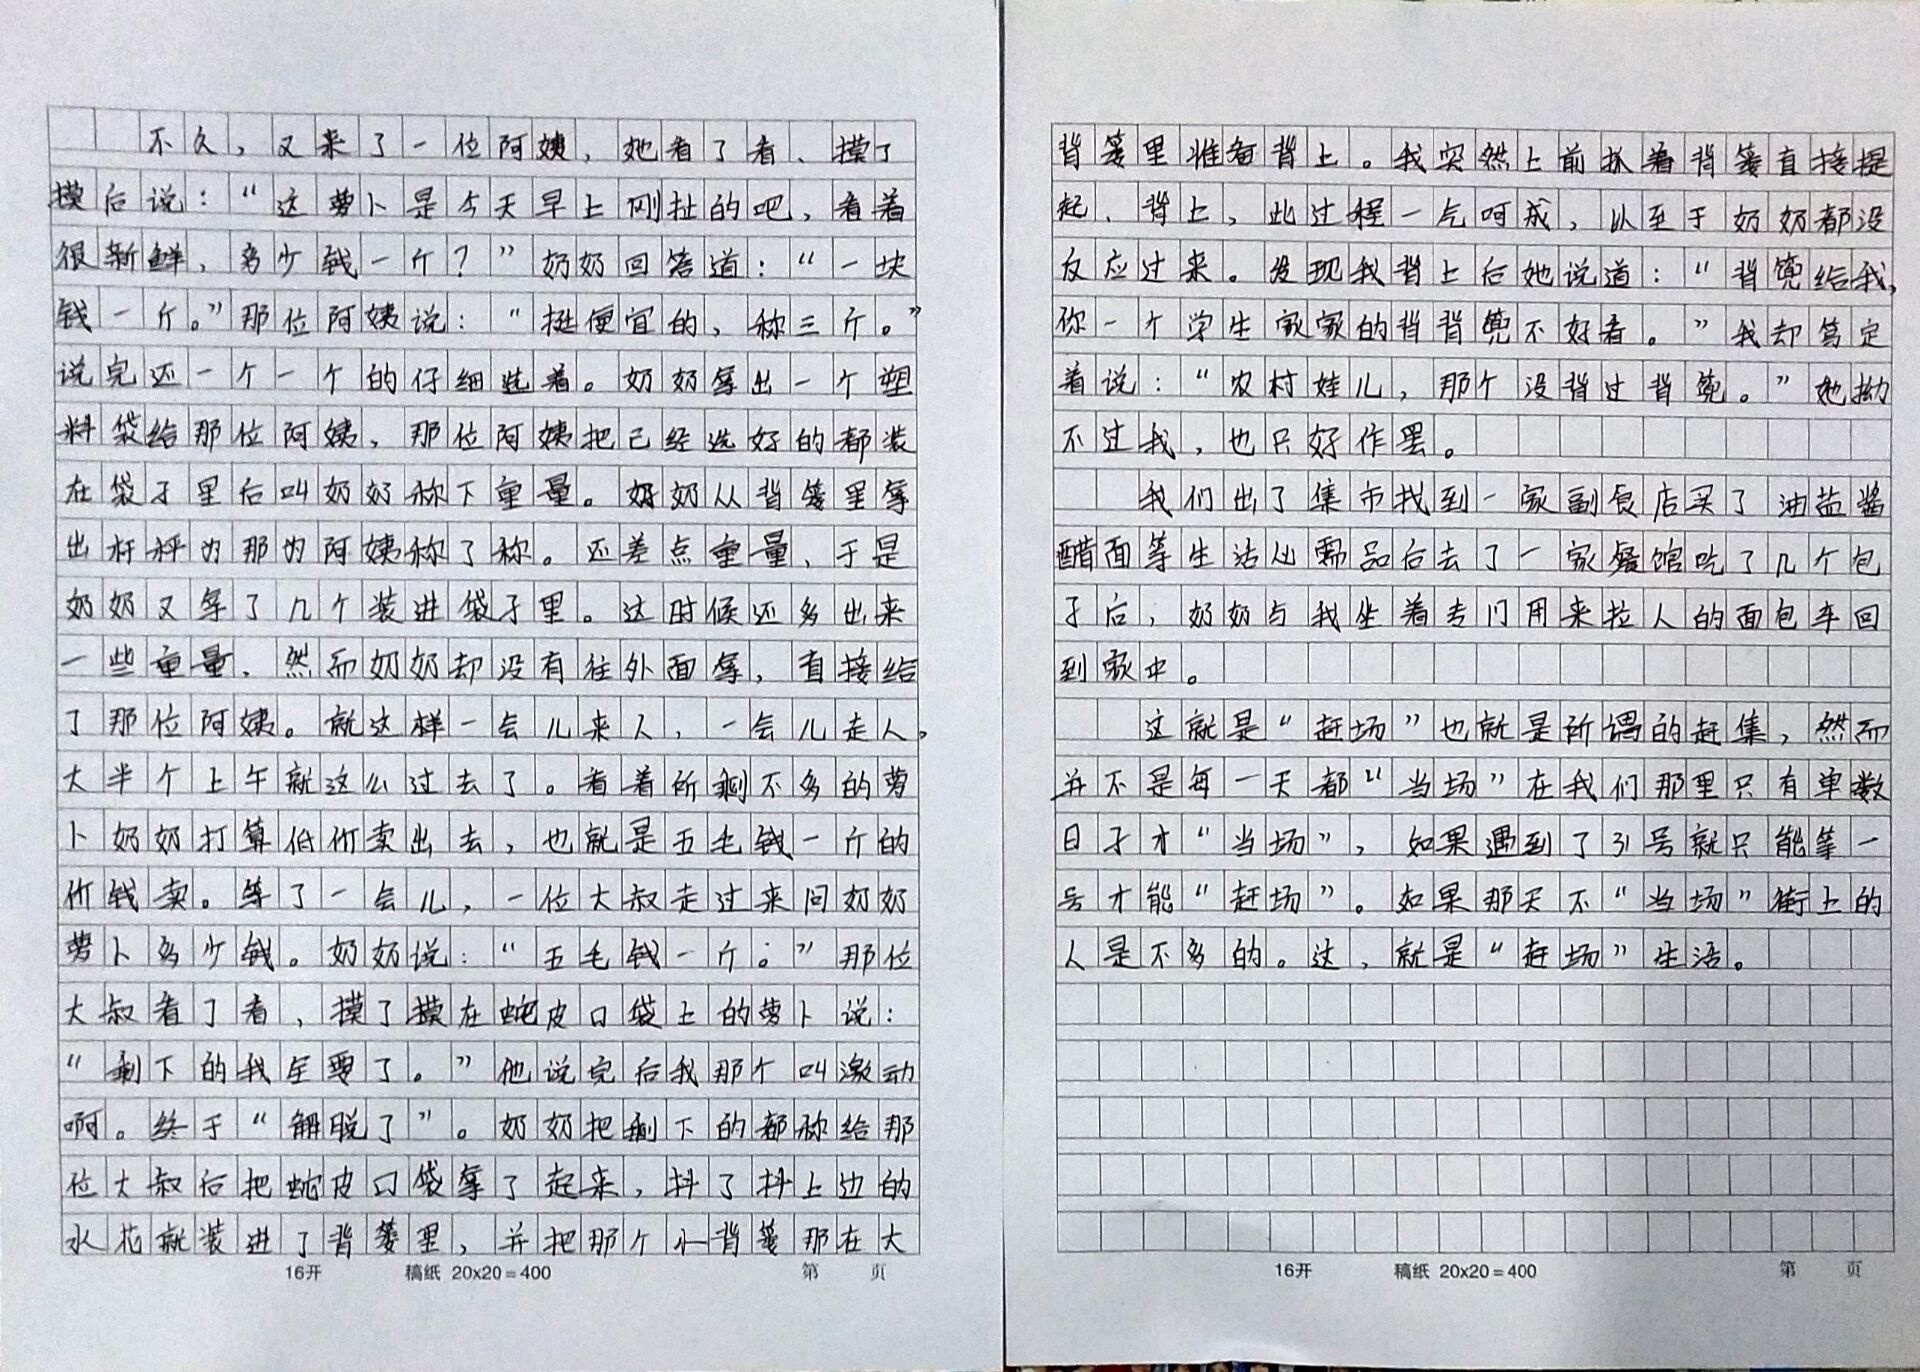 不久，又来了一位阿姨，她看了看、摸了
摸后说：“这萝卜是今天早上刚扯的吧，看着
很新鲜，多少钱一个？”奶奶回答道：“一块
钱一斤。”那位阿姨说：“挺便宜的，称三斤。”
说完还一个一个的仔细选着。奶奶拿出一个塑
料袋给那位阿姨，那位阿姨把已经选好的都装
在袋子里后叫奶奶称下重量。奶奶从背篓里拿
出杆秤为那为阿姨称了称。还差点重量，于是
奶奶又拿了几个装进袋子里。这时候还多出来
一些重量，然而奶奶却没有往外面拿，直接给
了那位阿姨。就这样一会儿来人，一会儿走人。
大半个上午就这么过去了。看着所剩不多的萝
卜奶奶打算低价卖出去，也就是五毛钱一斤的
价钱卖。等了一会儿，一位大叔走过来问奶奶
萝卜多少钱。奶奶说：“五毛钱一斤。”那位
大叔看了看，摸了摸在蛇皮口袋上的萝卜说：
“剩下的我全要了。”他说完后我那个叫激动
啊。终于“解脱了”。奶奶把剩下的都称给那
位大叔后把蛇皮口袋拿了起来，抖了抖上边的
水花就装进了背篓里，并把那个小背篓那在大
16开 稿纸 20x20=400 第 页
背篓里准备背上。我突然上前抓着背篓直接提
起、背上，此过程一气呵成，以至于奶奶都没
反应过来。发现我背上后她说道：“背篼给我，
你一个学生家家的背背篼不好看。”我却笃定
着说：“农村娃儿，那个没背过背篼。”她拗
不过我，也只好作罢。
我们出了集市找到一家副食店买了油盐酱
醋面等生活必需品后去了一家餐馆吃了几个包
子后，奶奶与我坐着专门用来拉人的面包车回
到家中。
这就是“赶场”也就是所谓的赶集，然而
并不是每一天都“当场”在我们那里只有单数
日子才“当场”，如果遇到了31号就只能等一
号才能“赶场”。如果那天不“当场”街上的
人是不多的。这，就是“赶场”生活。
16开 稿纸 20x20=400 第 页